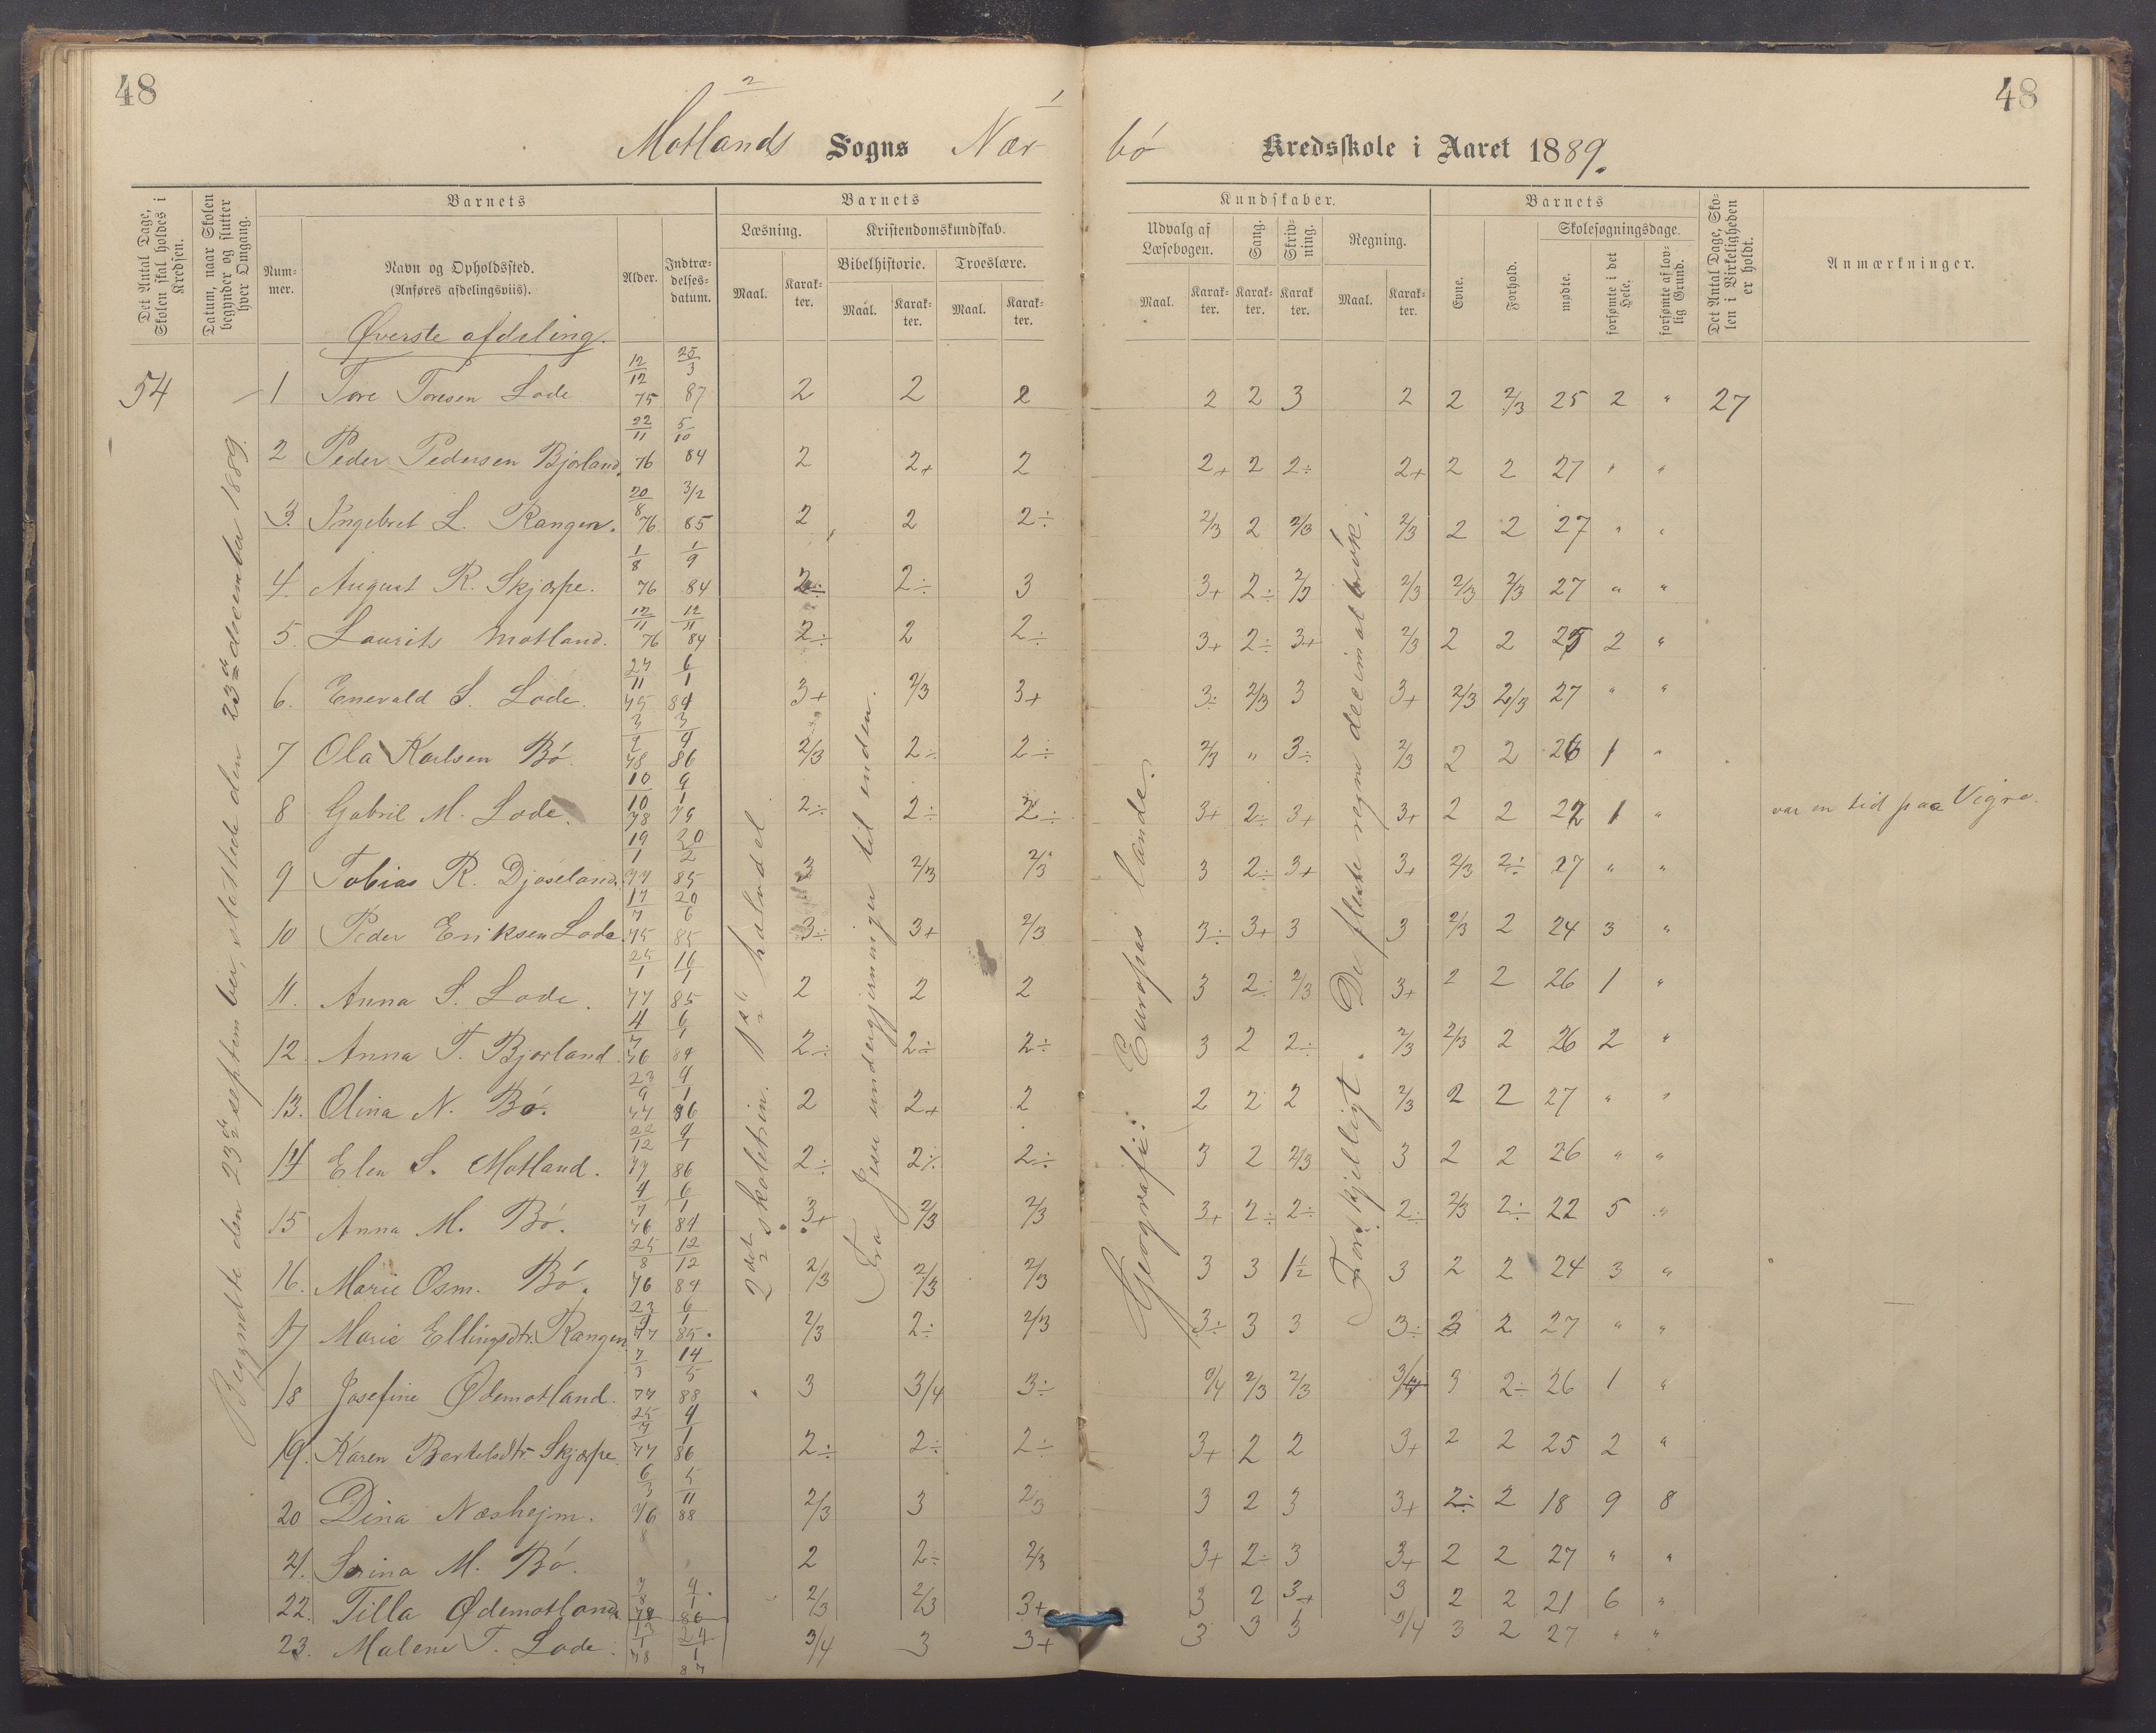 48
48
2
1
Motlands Sogns Nærbø Kredsskole i Aaret 1889.
Det Antal Dage, Skolen skal holdes i Kredsen.
Datum, naar Skolen begynder og slutter hver Omgang.
Barnets
Barnets
Kundskaber.
Barnets
Det Antal Dage, Skolen i Virkeligheden er holdt.
Anmærkninger.
Nummer.
Navn og Opholdssted.
(Anføres afdelingsviis).
Alder.
Indtrædelsesdatum.
Læsning.
Kristendomskundskab.
Bibelhistorie.
Troeslære.
Udvalg af Læsebogen.
Sang.
Skrivning.
Regning.
Evne.
Forhold.
Skolesøgningsdage.
mødte.
forsømte i det Hele.
forsømte af lovlig Grund.
Maal. Karakter. Maal. Karakter. Maal. Karakter. Maal. Karakter. Karakter. Karakter. Maal. Karakter.
Øverste afdeling.
54 1 Tore Toresen Lode 12/12 75 25/3 87 2 2 2 2 2 3 2 2 2/3 25 2 " 27
2 Peder Pedersen Bjorland. 22/11 76 5/10 84 2 2+ 2 2+ 2 2÷ 2+ 2 2 27 " "
3. Ingebret L. Rangen. 20/8 76 3/2 85 2 2 2÷ 2/3 2 2/3 2/3 2 2 27 " "
4. August R. Skjærpe. 1/8 76 1/9 84 2÷ 2÷ 3 3+ 2÷ 2/3 2/3 2/3 2/3 27 " "
5. Laurits Motland. 12/11 76 12/11 84 2÷ 2 2÷ 3+ 2÷ 3+ 2/3 2 2 25 2 "
6. Enevald S. Lode. 27/11 75 6/1 84 3+ 2/3 3+ 3÷ 2/3 3 3+ 2/3 2/3 27 " "
7 Ola Karlsen Bó. 78 86 2/3 2÷ 2÷ 2/3 " 3÷ 2/3 2 2 26 1 "
8 Gabril M. Lode. 10/10 78 2÷ 2÷ 2÷ 3+ 2÷ 3+ 3+ 2 2 22 1 " var en tid paa Vigre.
9 Tobias R. Djøseland. 19/1 77 20/2 85 3 2/3 2/3 3 2÷ 3+ 3+ 2/3 2÷ 27 " "
10 Peder Eriksen Lode. 17/7 75 20/6 85 3÷ 3+ 2/3 3÷ 3+ 3 3 2/3 2 24 3 "
11. Anna S. Lode. 25/1 77 16/1 85 2 2 2 3 2÷ 2/3 3+ 2 2 26 1 "
12. Anna T. Bjorland. 4/7 76 6/1 84 2÷ 2÷ 2÷ 3 2 2÷ 2/3 2/3 2 26 2 "
13. Olina N. Bó. 23/9 77 4/1 86 2 2+ 2 2 2 2 2/3 2 2 27 " "
14 Elen S. Motland. 22/12 77 4/1 86 2÷ 2÷ 2÷ 3 2 2/3 3 2 2 26 " "
15 Anna M. Bó. 4/7 76 6/1 84 3+ 2/3 2/3 3+ 2÷ 2÷ 2÷ 2/3 2÷ 22 5 "
16. Marie Osm. Bó. 25/8 76 12/12 84 2/3 2/3 2/3 3 3 1½ 3 2 2 24 3 "
17 Marie Ellingsdtr. Rangen. 77 6/1 85. 2/3 2÷ 2/3 3÷ 3 3 3÷ 3 2 27 " "
18 Josefine Ødemotland. 7/3 77 14/5 88 3 3/4 3÷ 3/4 2/3 2/3 3 2÷ 26 1 "
19. Karen Bertelsdtr. Skjærpe. 77 4/1 86 2÷ 2÷ 2÷ 3+ 2 2 3+ 2 2 25 2 "
20 Dina Næshejm. 6/3 76 5/11 88 2/3 3 2/3 3 2 3 3+ 2÷ 2 18 9 8
21. Serina M. Bó. 2 2÷ 2/3 3+ 2÷ 3 3+ 2 2 27 " "
22. Tilla Ødemotland 86 2/3 2/3 3+ 3 2 3+ 3 2 2 21 6 "
23. Malene T. Lode. 13/1 78 24/1 87 3/4 3 3+ 3 3 3 3/4 3 2 27 " "
Begyndte den 23de septem ber, slettede den 23de december 1889.
2det skoletrin. 1ste halvdel
Fra Jesu undergjerninger til enden.
Geografi: Europas lande.
Forskjelligt. De fleste regne decimalbrøk.